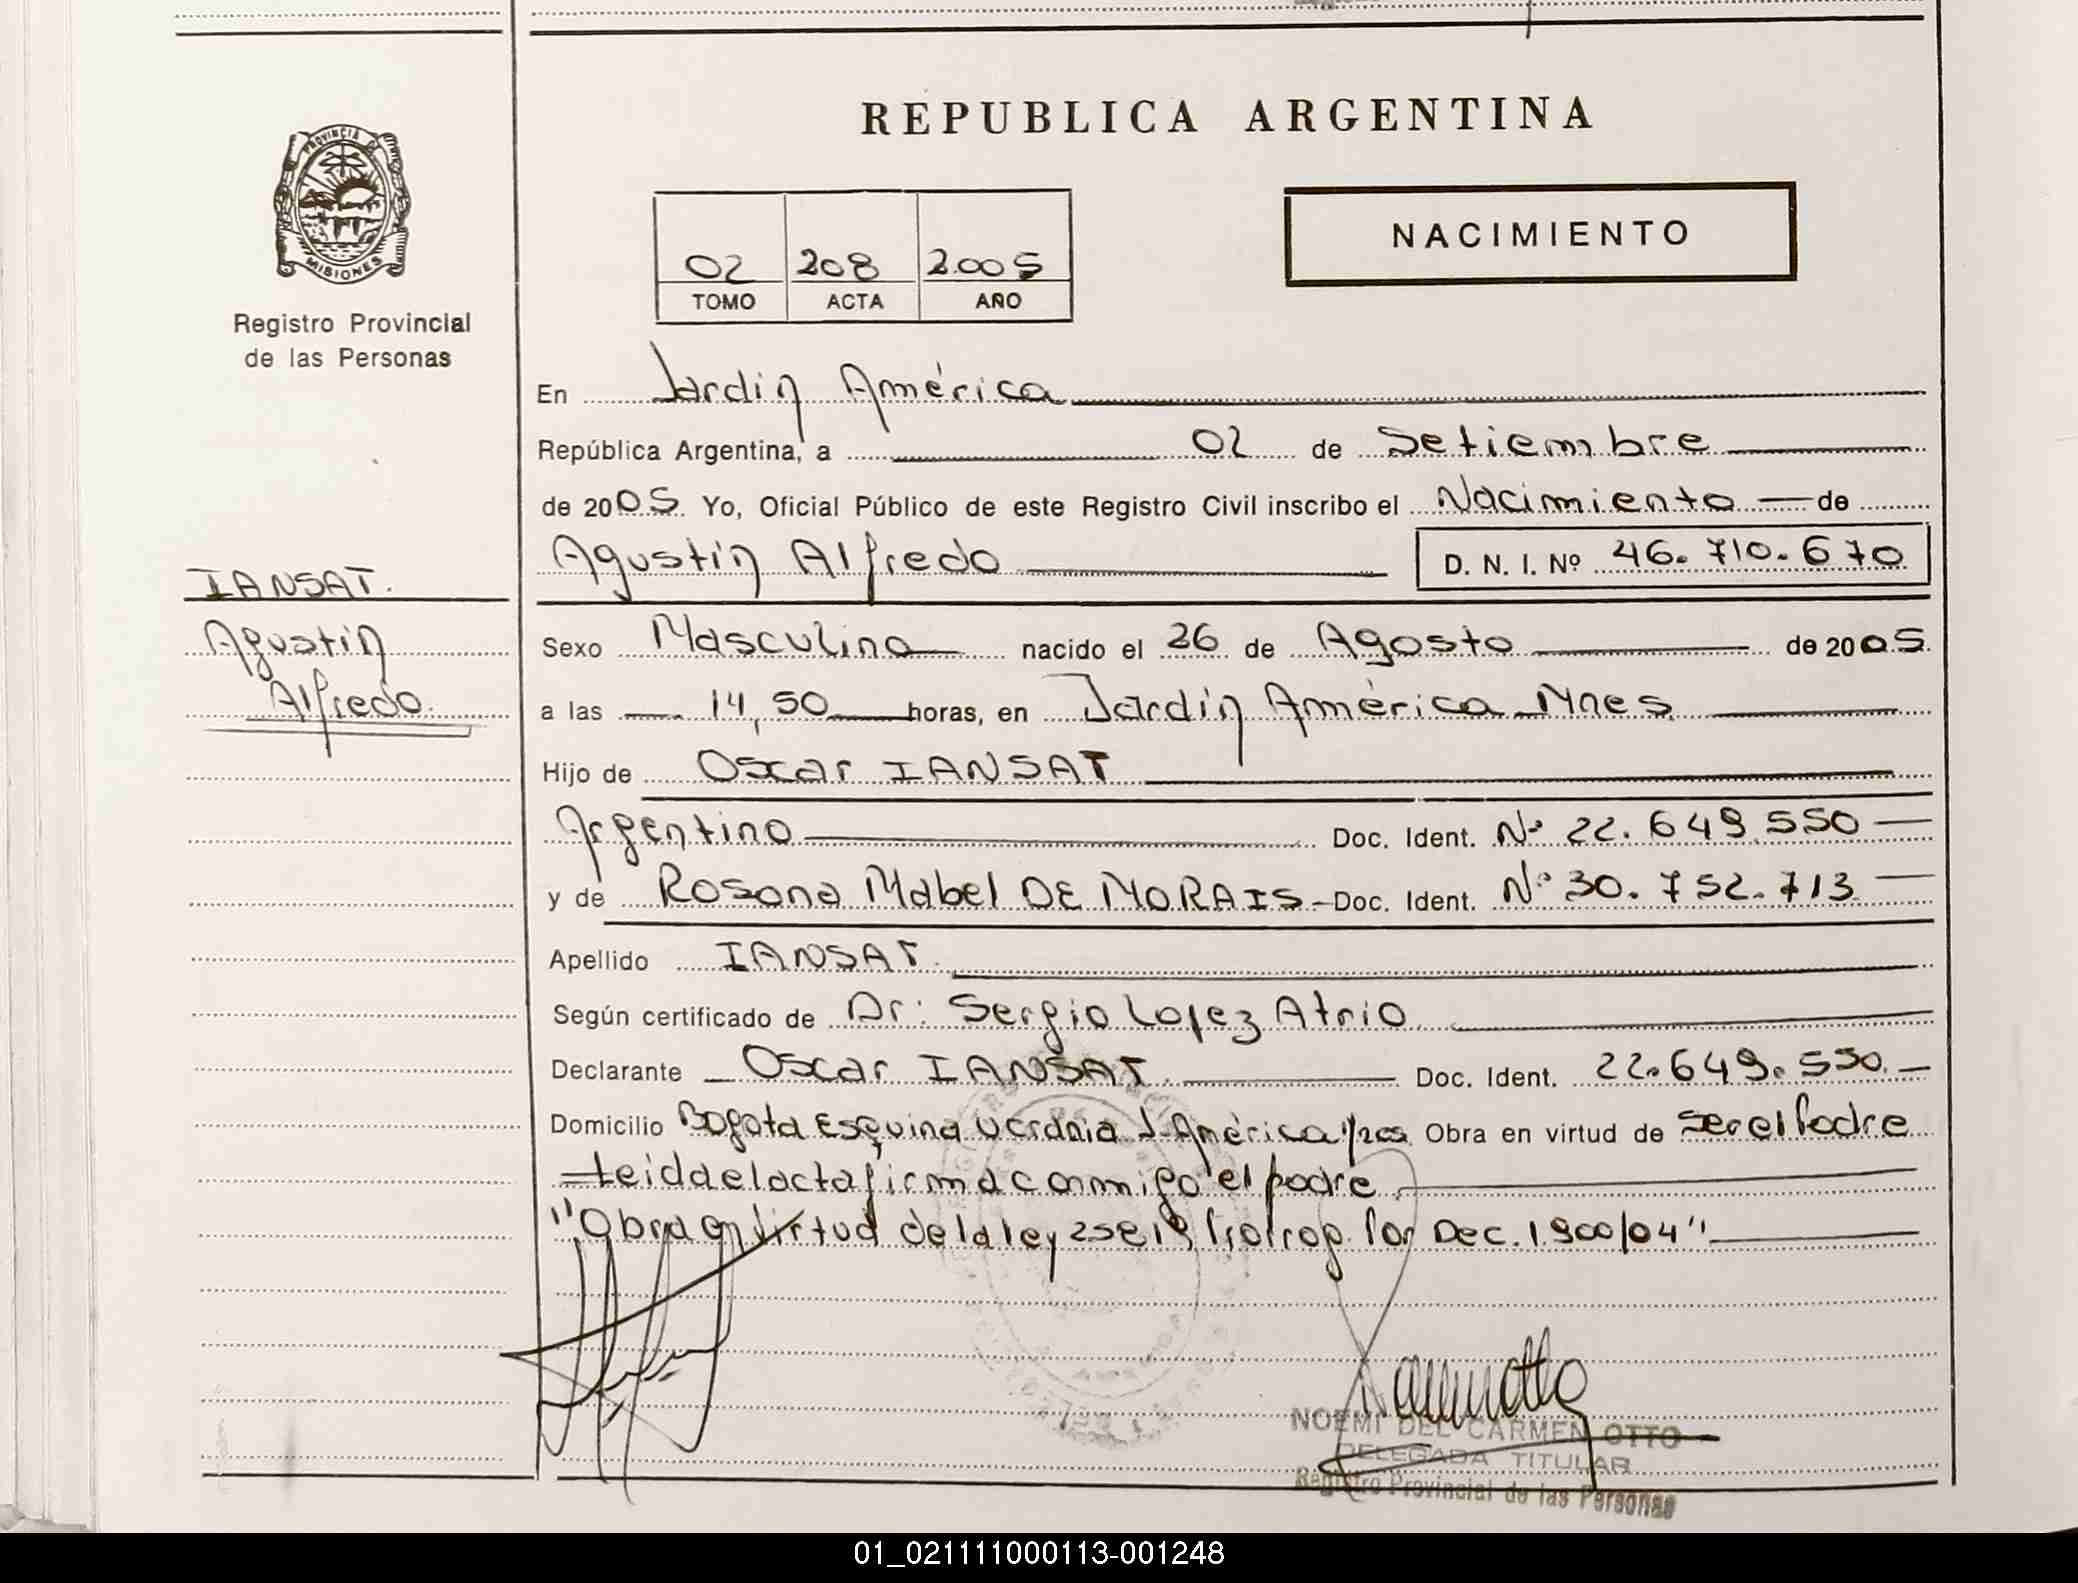 REPUBLICA ARGENTINA
PROVINCIA DE
MISIONES
Registro Provincial
de las Personas
02 208 2.005
TOMO ACTA AÑO
NACIMIENTO
En Jardin América
República Argentina, a 02 de Setiembre
de 2005 Yo, Oficial Público de este Registro Civil inscribo el Nacimiento de
Agustín Alfredo D. N. I. Nº 46.710.670
IANSAT.
Agustín
Alfredo.
Sexo Masculino nacido el 26 de Agosto de 2005.
a las 14,50 horas, en Jardín América Mnes
Hijo de Oscar IANSAT
Argentino Doc. Ident. Nº 22.649.550
y de Rosana Mabel DE MORAIS - Doc. Ident. Nº 30.752.713
Apellido IANSAT.
Según certificado de Dr: Sergio Lopez Atrio
Declarante Oscar IANSAT. Doc. Ident. 22.649.550.
Domicilio Bogota Esquina Ucrania J. América Obra en virtud de ser el Padre
Leida el acta firma conmigo el padre
"Obra en Virtud de la ley por Dec. 1.900/04"
NOEMI DEL CARMEN OTTO
DELEGADA TITULAR
Registro Provincial de las Personas
01_021111000113-001248